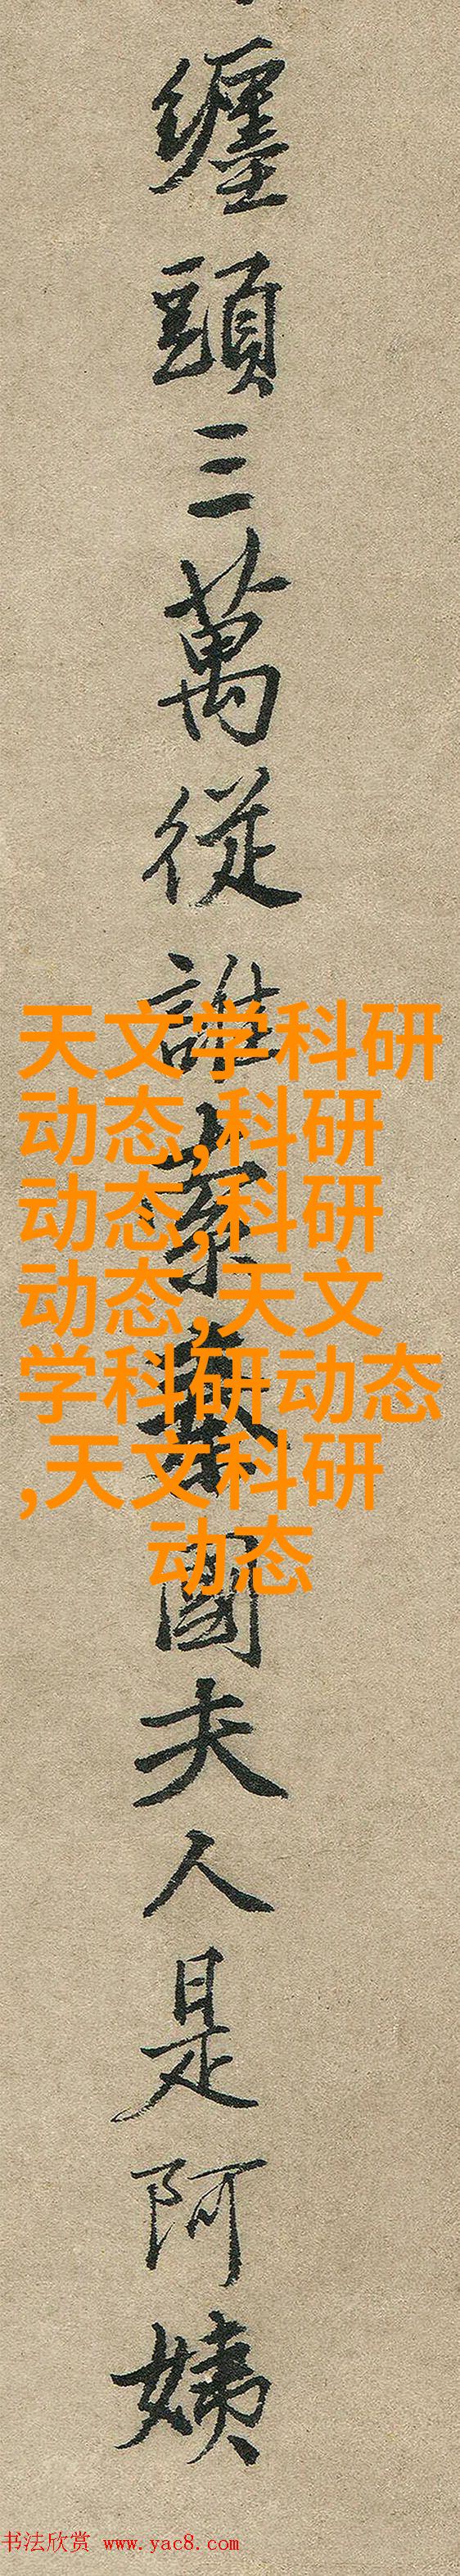 纏頭三萬從誰索秦國夫人是阿姨
天文学科研
动态,科研
动态,科研
动态,天文
学科研动态
,天文科研
动态
书法欣赏 www.yac8.com